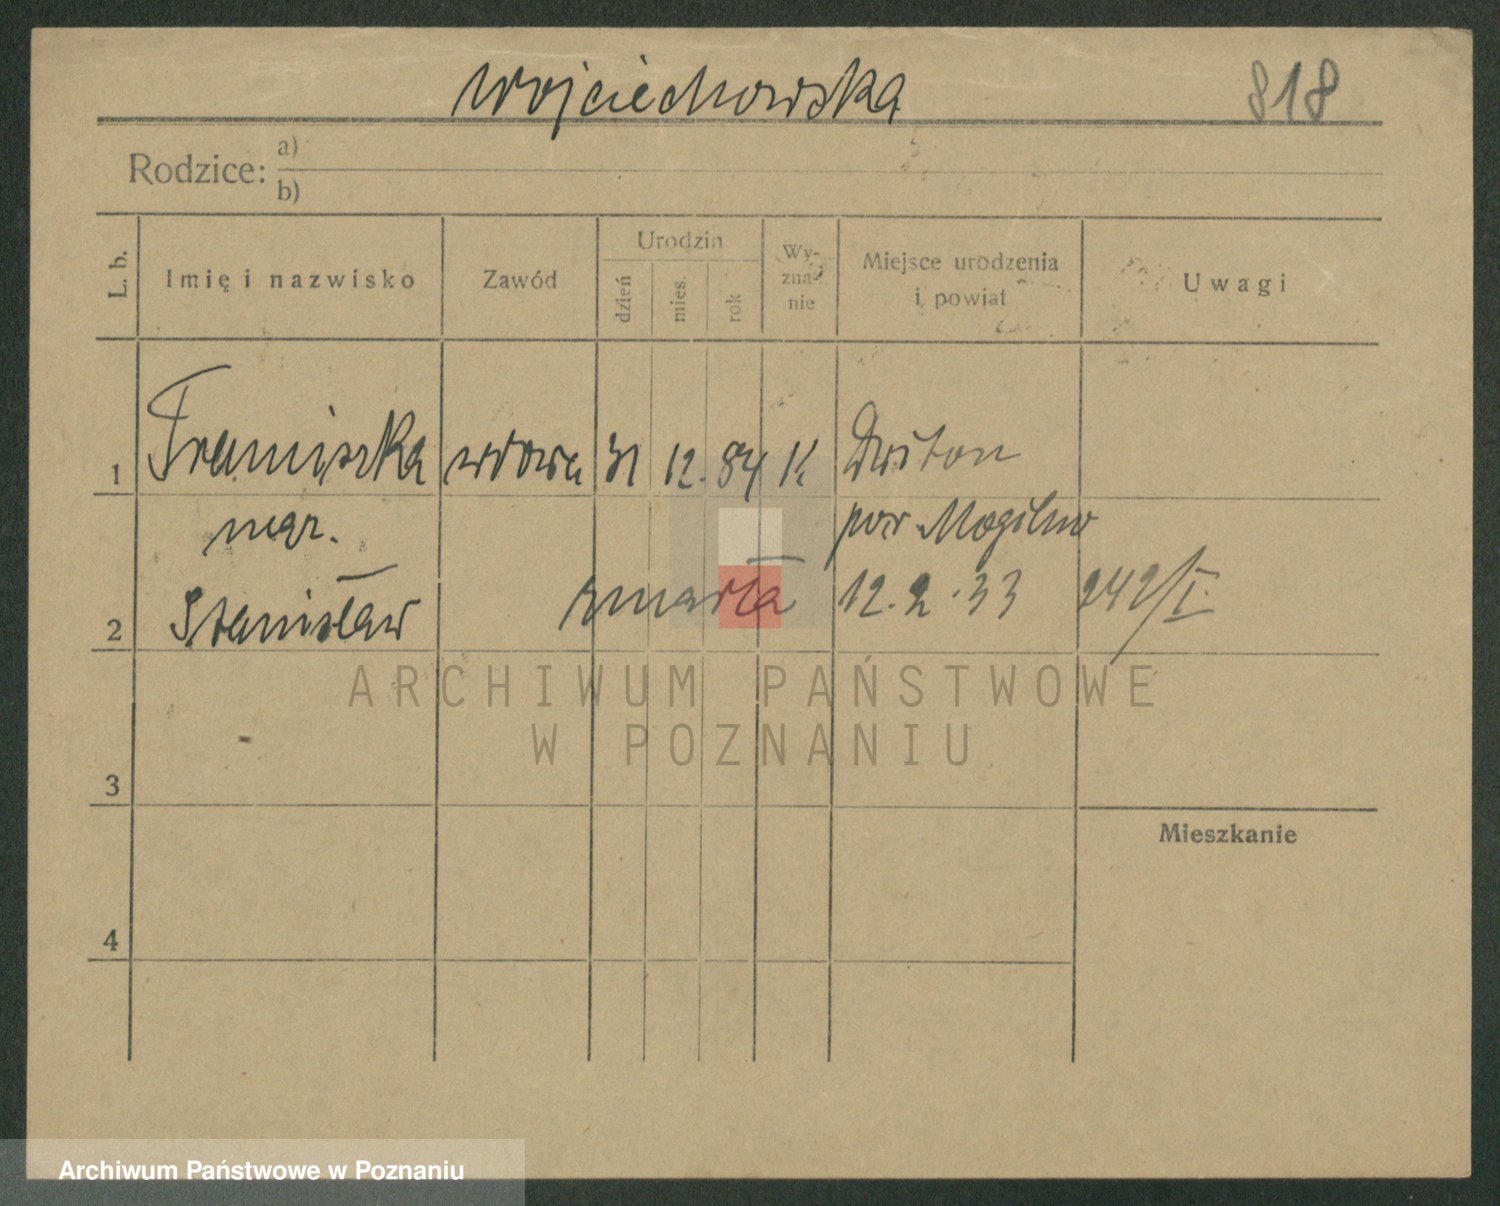 Wojciechowska 818
Rodzice: a)
b)
L. b. Imię i nazwisko Zawód Urodzin dzień mies. rok Wy-zna-nie Miejsce urodzenia i powiat Uwagi
1 Franciszka wdowa 31 12. 84 K
mąż. pow Mogilno
2 Stanisław zmarła 12.2.33 242/I.
3
Mieszkanie
4
ARCHIWUM PAŃSTWOWE
W POZNANIU
Archiwum Państwowe w Poznaniu